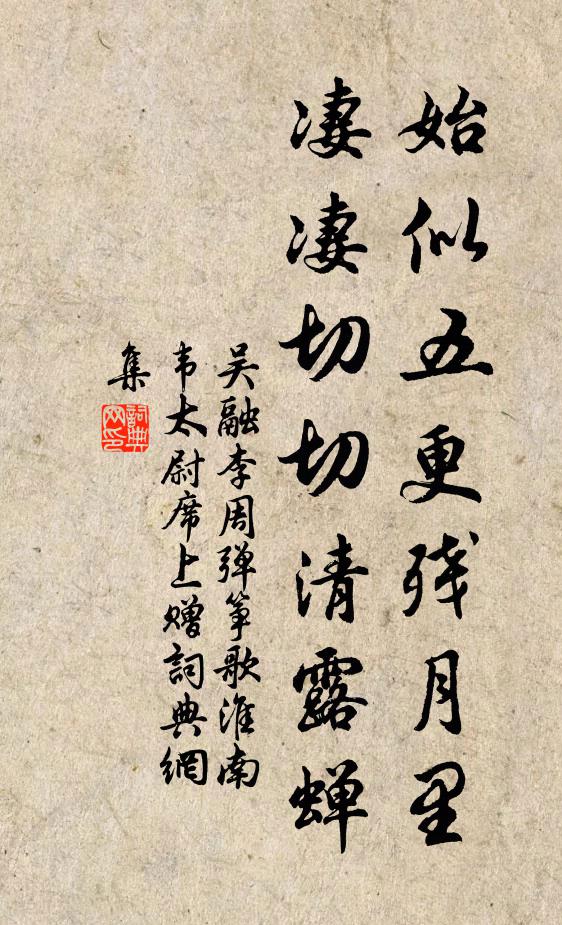 始似五更残月里
凄凄切切清露蝉
吴融李周弹筝歌淮南
韦太尉席上赠詞典網
集
詞典網印